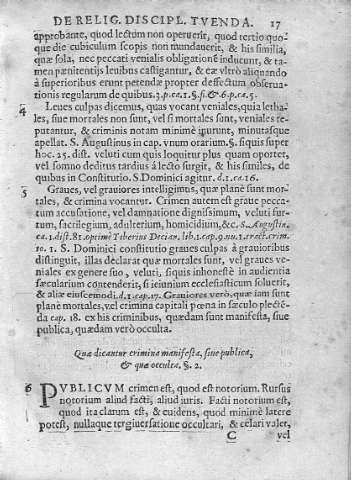 DE RELIG. DISCIPL. TVENDA. 17
approbante, quod lectum non operuerit, quod tertio quo-
que die cubiculum scopis non mundauerit, & his similia,
quæ sola, nec peccati venialis obligationē inducunt, & ta-
men pœnitentijs leuibus castigantur, & ea vltrò aliquando
à superioribus erunt petendæ propter defectum obserua-
tionis regularum de quibus. 3. p. ca. 1. §. fi & 6. p. ca. 5.
4 Leues culpas dicemus, quas vocant veniales, quia letha-
les, siue mortales non sunt, vel si mortales sunt, veniales re-
putantur, & criminis notam minimè iņurunt, minutasque
appellat. S. Augustinus in cap. vnum orarium. §. siquis super
hoc. 25. dist. veluti cum quis loquitur plus quam oportet,
vel somno deditus tardius à lecto surgit, & his similes, de
quibus in Constitutio. S. Dominici agitur. d. 1. ca. 16.
5 Graues, vel grauiores intelligimus, quæ planè sunt mor-
tales, & crimina vocantur. Crimen autem est graue pecca-
tum accusatione, vel damnatione dignissimum, veluti fur-
tum, sacrilegium, adulterium, homicidium, &c. S. Augustin.
ca. 1. dist. 81. optimè Tiberius Decian. lib. 1. cap. 9. nu. 1. tract. crim.
ro. 1. S. Dominici constitutio graues culpas à grauioribus
distinguit, illas declarat quæ mortales sunt, vel graues ve-
niales ex genere suo, veluti, siquis inhonestè in audientia
sæcularium contenderit, si ieiunium ecclesiasticum soluerit,
& aliæ eiuscemodi. d. 1. cap. 17. Grauiores verò, quæ iam sunt
planè mortales, vel crimina capitali pœna in sæculo plectē-
da cap. 18. ex his criminibus, quædam sunt manifesta, siue
publica, quædam verò occulta.
Quæ dicantur crimina manifesta, siue publica,
& quæ occulta, §. 2.
6 PVBLICVM crimen est, quod est notorium. Rursus
notorium aliud facti, aliud iuris. Facti notorium est,
quod ita clarum est, & euidens, quod minimè latere
potest, nullaque tergiuersatione occultari, & celari valet,
C vel